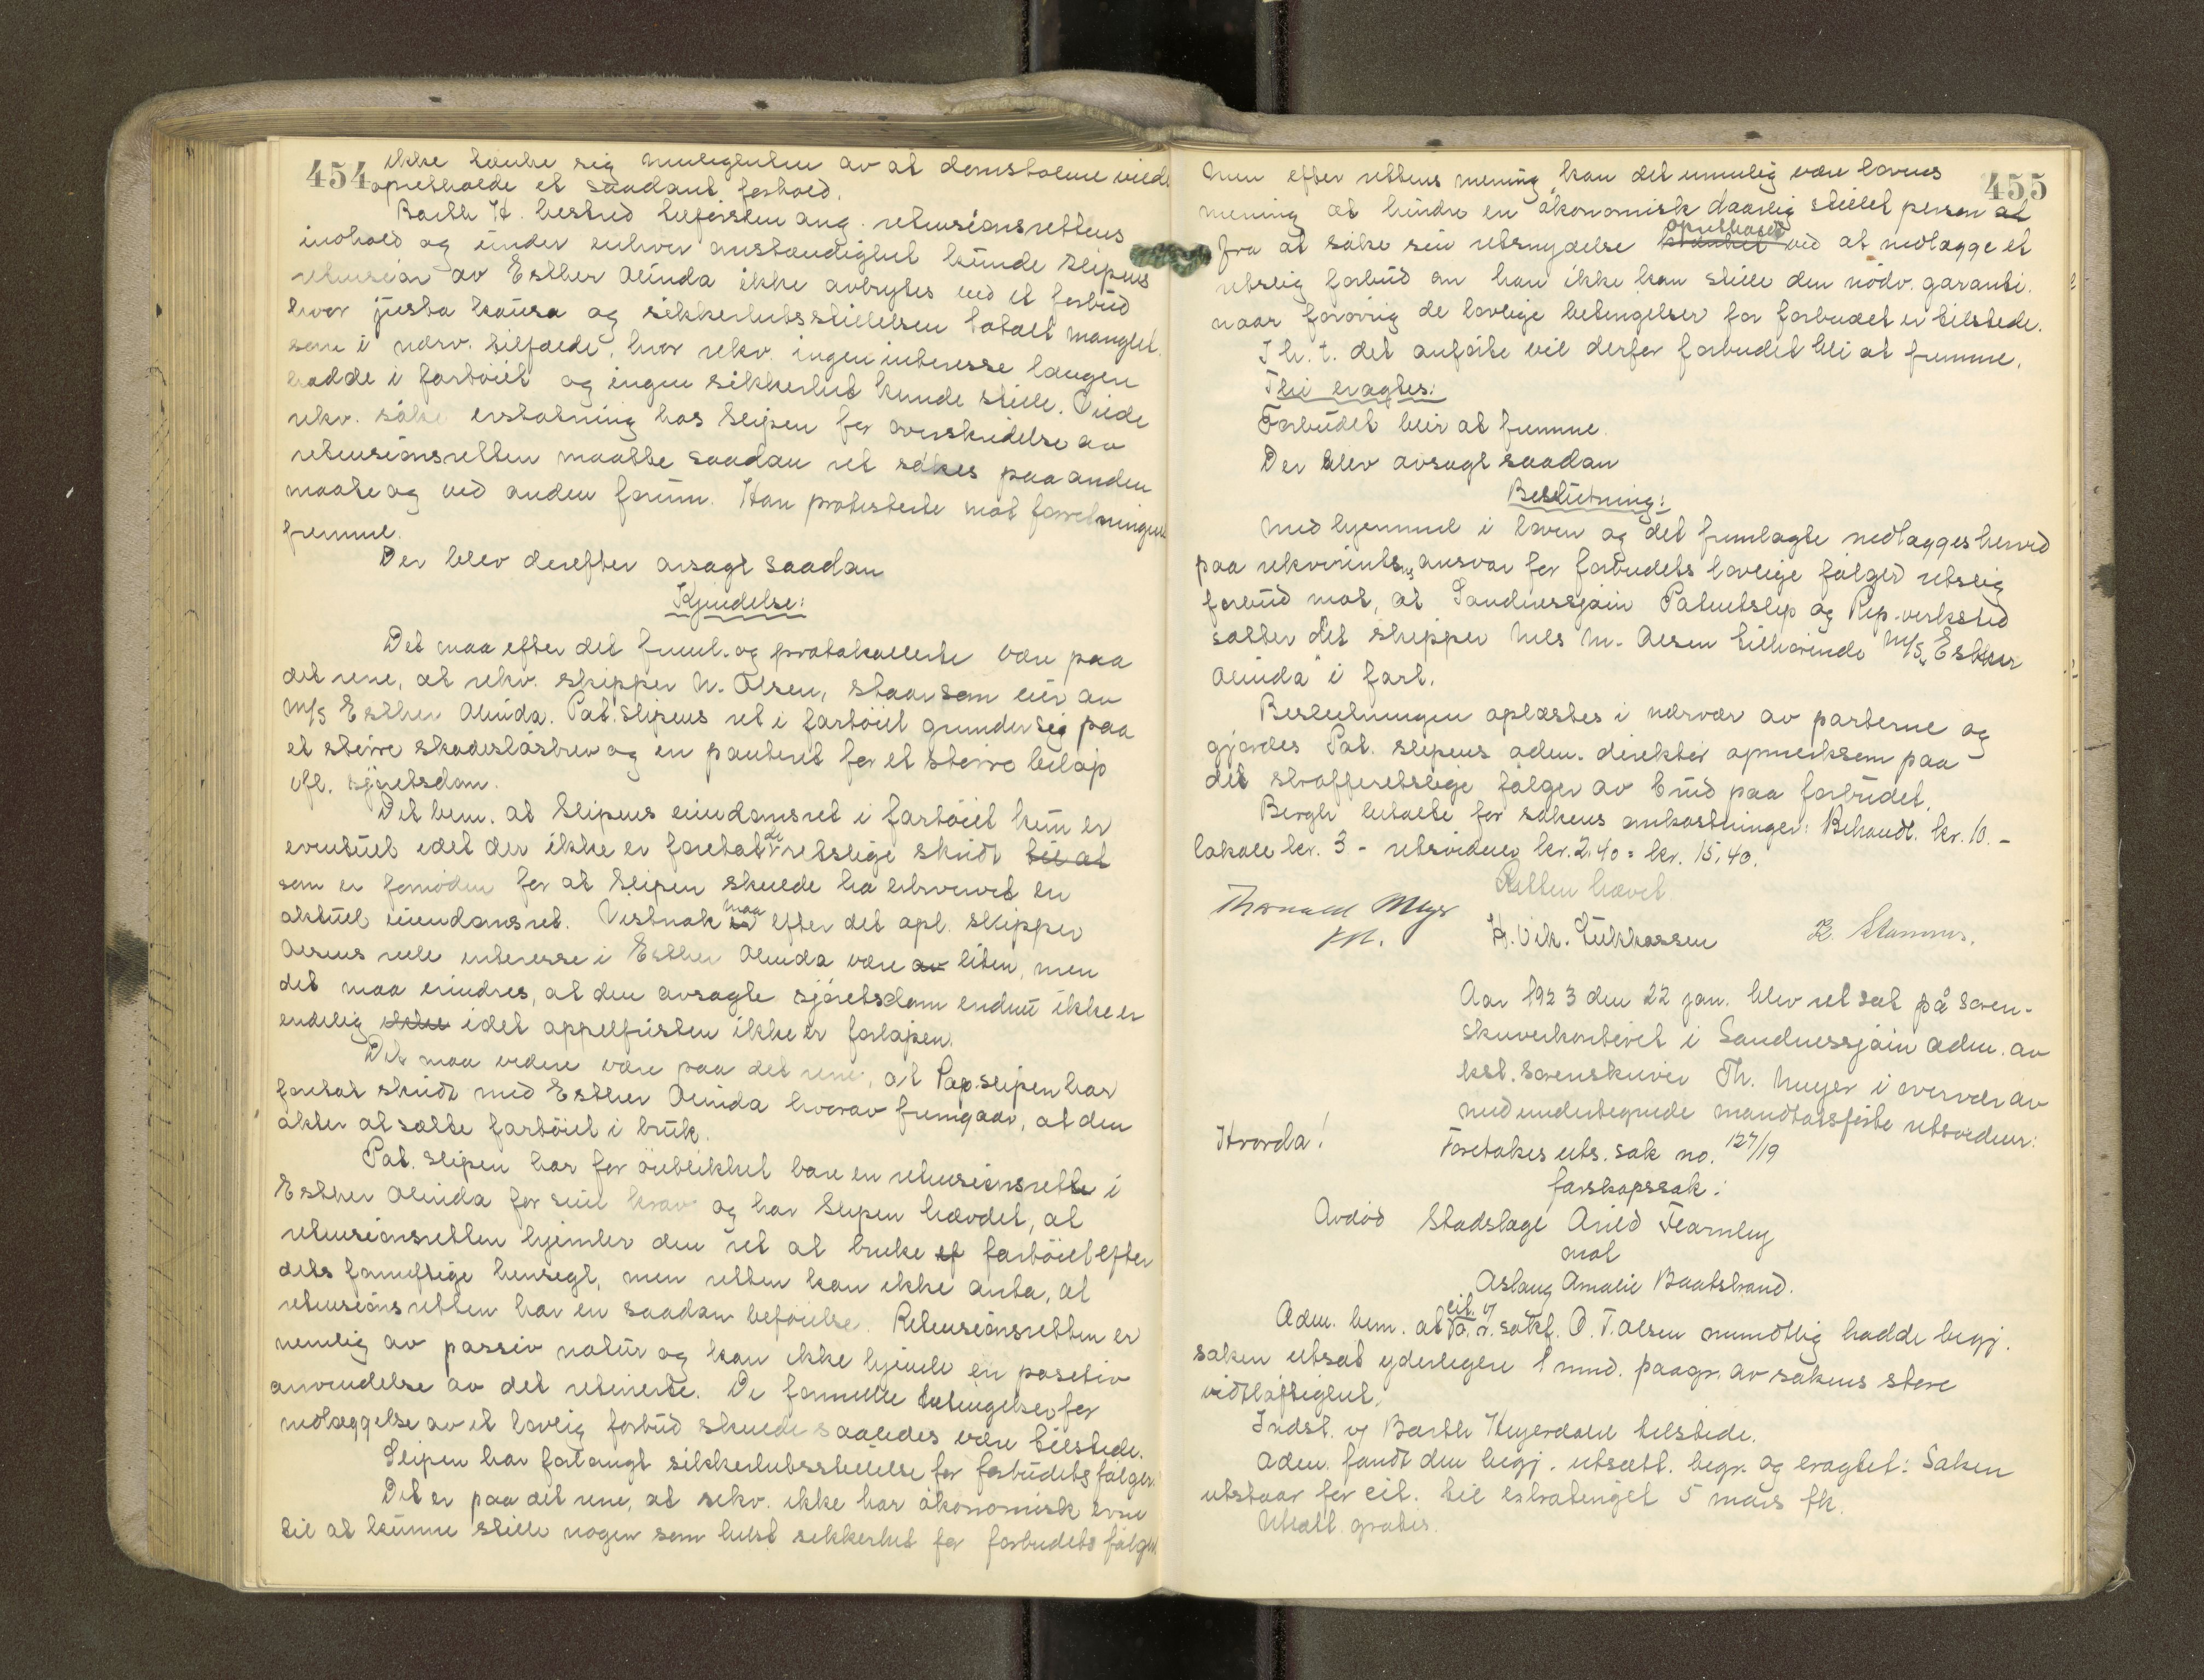 454
ikke tænke sig muligheten av at domstolene vilde
opretholde et saadant forhold.
Barth H. bestred utførslen ang. retensionsrettens
indhold og under enhver omstændighet kunde Slipens
retension av Esther Alinda ikke avbrytes ved et forbud
hvor justa kausa og sikkerhetsstillelsen totalt manglet
som i nærv. tilfælde, hvor rekv. ingen interesse længere
hadde i fartøiet og ingen sikkerhet kunde stille. Vilde
rekv. søke erstatning hos Slipen for overskridelse av
retensionsretten maatte saadan ret søkes paa anden
maate og ved anden forum. Han protesterte mot forretningens
fremme.
Der blev derefter avsagt saadan
Kjendelse:
Det maa efter det freml. og protokollerte være paa
det rene, at rekv. skipper N. Olsen, staar som eier av
M/S Esther Alinda. Pat. Slipens ret i fartøiet grunder sig paa
et større skadesløsbrev og en panteret for et større beløp
ifl. sjøretsdom.
Det bem. at Slipens eiendomsret i fartøiet kun er
eventuel idet der ikke er foretat de retslige skridt til at
som er fornøden for at Slipen skulde ha erhvervet en
aktuel eiendomsret. Vistnok maa efter det opl. skipper
Olsens reele interesse i Esther Alinda være av liten, men
det maa erindres, at den avsagte sjøretsdom endnu ikke er
endelig ikke idet appelfristen ikke er forløpen.
Det maa videre være paa det rene, at Pap. slipen har
foretat skridt med Esther Alinda hvorav fremgaar, at den
akter at sætte fartøiet i bruk.
Pat. Slipen har for øieblikket bare en retensionsrette i
Esther Alinda for sit krav og har Slipen hævdet, at
retensionsretten hjemler den ret at bruke ef fartøiet efter
dets fornuftige hensegt, men retten kan ikke anta, at
retensionsretten har en saadan beføielse. Retensionsretten er
nemlig av passiv natur og kan ikke hjemle en positiv
anvendelse av det retinerte. De formelle betingelser for
nedlæggelse av et lovlig forbud skulde saaledes være tilstede.
Slipen har forlangt sikkerhetsstillelse for forbudets følger.
Det er paa det rene, at rekv. ikke har økonomisk evne
til at kunne stille nogen som helst sikkerhet for forbudets følger.
455
Men efter rettens mening kan det umulig være lovens
mening at hindre en økonomisk daarlig stillet person at
opretholdt
fra at søke sin retsnydelse ved at nedlægge et
retslig forbud om han ikke kan stille den nødv. garanti.
naar forøvrig de lovlige betingelser for forbudet er tilstede.
I h. t. det anførte vil derfor forbudet bli at fremme.
Thi eragtes:
Forbudet blir at fremme.
Der blev avsagt saadan
Beslutning:
Med hjemmel i loven og det fremlagte nedlægges herved
paa rekvirentens ansvar for forbudets lovlige følger retslig
forbud mot, at Sandnessjøin Patentslip og Rep. verksted
sætter det skipper Nels M. Olsen tilhørende M/S „Esther
Alinda" i fart.
Beslutningen oplæstes i nærvær av parterne og
gjordes Pat. slipens adm. direktør opmerksom paa
det strafferetslige følger av brud paa forbudet.
Bergh betalte for sakens omkostninger: Behandl. kr. 10.-
lokale kr. 3 - retsvidner kr. 2.40 = kr. 15,40.
Retten hævet
Thorvald Meyer
H. Vik. Lukkassen
Aar 1923 den 22 jan. blev ret sat på Soren-
skriverkontoret i Sandnessjøin adm. av
kst. sorenskriver Th. Meyer i overvær av
nedundertegnede mandtalsførte retsvidner:
Hvorda!
Foretokes uts. sak no. 127/19
farskapssak:
Avdød Stadslage Arild Fearnley
mot
Aslaug Amalie Baatstrand.
Adm. bem. at cit. v/ o. r. sakf. O. T. Olsen mundtlig hadde begj.
saken utsat yderligere 1 mnd. paagr. av sakens store
vidtløftighet.
Indst. v/ Barth Heyerdahl tilstede.
Adm. fandt den begj. utsætt. begr. og eragtet: Saken
utstaar for cit. til extratinget 5 mars fk.
Utsætt. gratis.